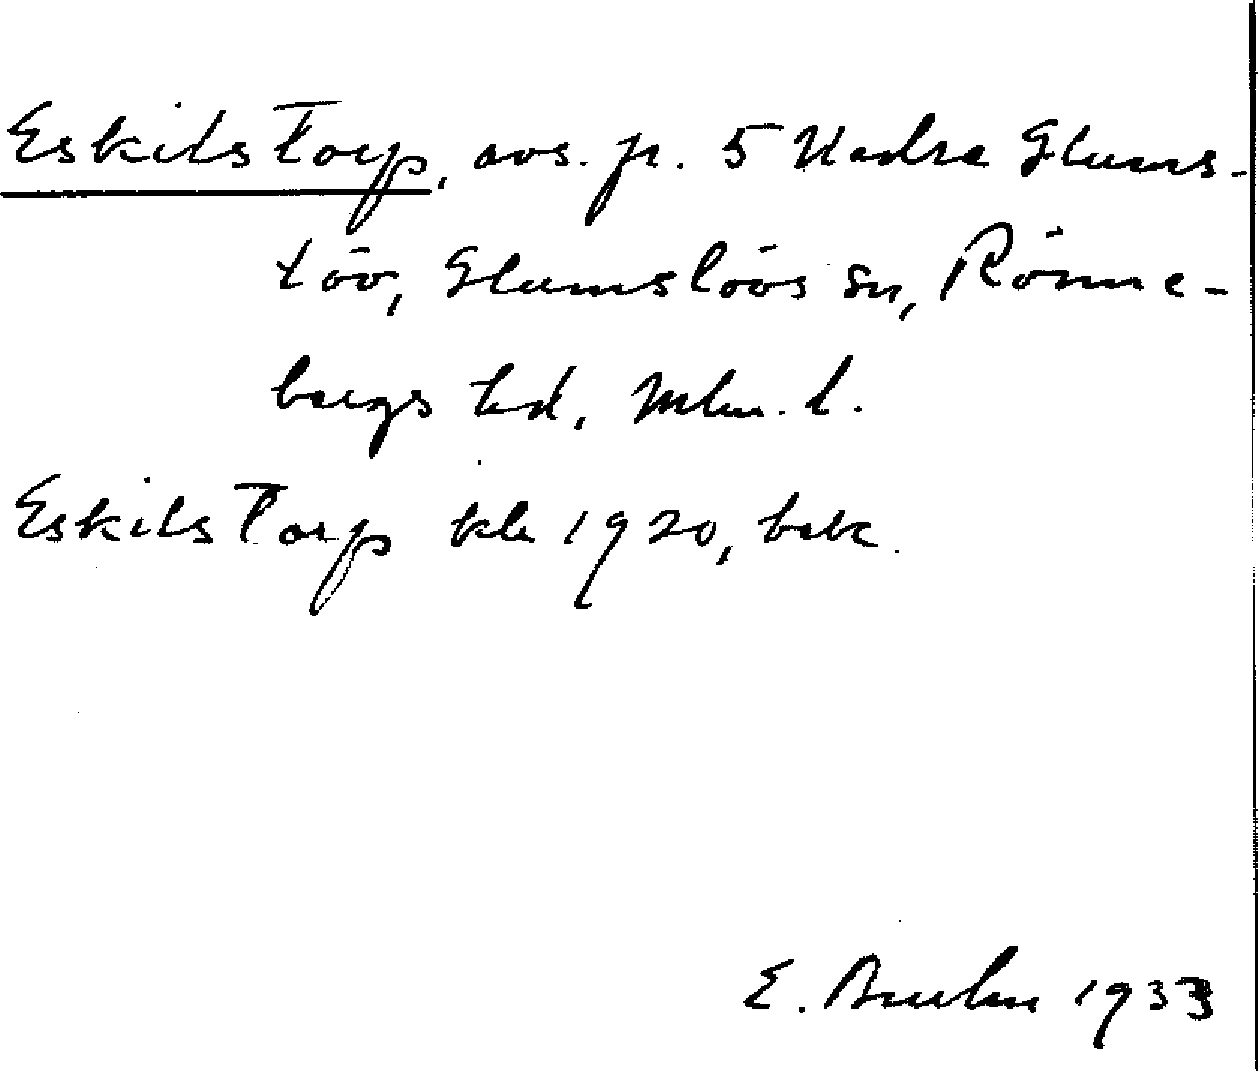 Eskilstorp, avs. fr. 5 Norra Glums-
löv, Glumslövs sn, Rönne-
bergs hd, Mlm. l.
Eskilstorp kb 1920, bebc.
E. Bruhn 1933